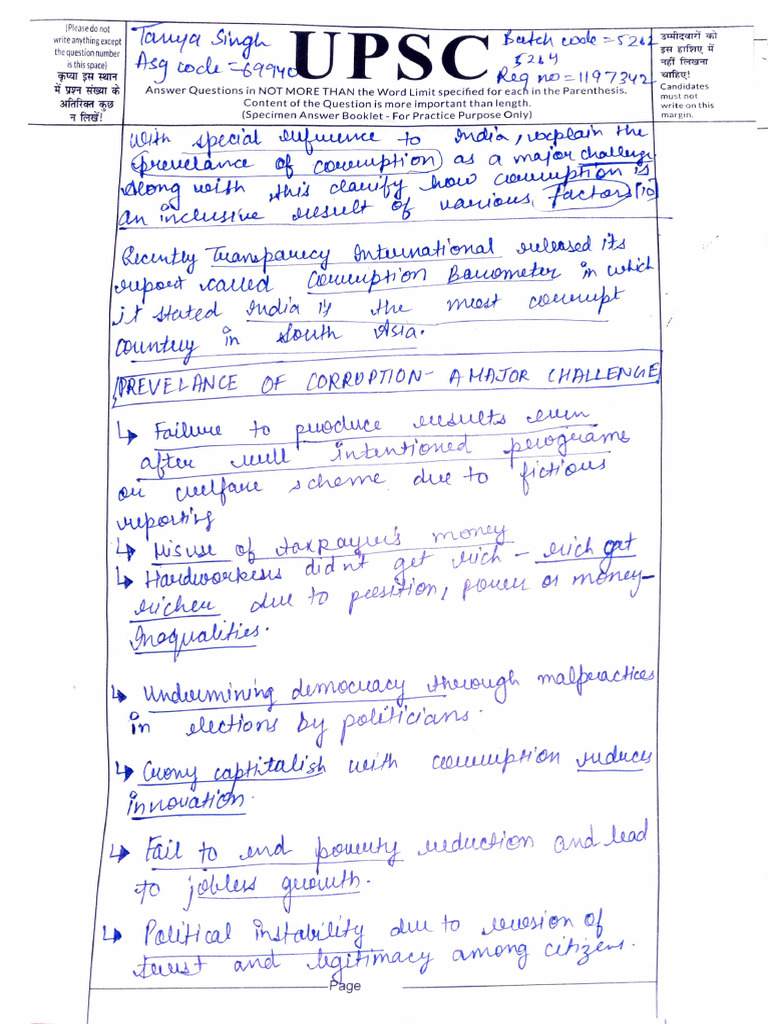 (Please do not
write anything except
the question number
is this space)
कृप्या इस स्थान
में प्रश्न संख्या के
अतिरिक्त कुछ
न लिखें!
Tanya Singh
Asg code = 69940
UPSC
Batch code = 5262
5264
Reg no = 1197342
Answer Questions in NOT MORE THAN the Word Limit specified for each in the Parenthesis.
Content of the Question is more important than length.
(Specimen Answer Booklet - For Practice Purpose Only)
उम्मीदवारों को
इस हाशिए में
नहीं लिखना
चाहिए!
Candidates
must not
write on this
margin.
With special reference to India, explain the
prevelance of corruption as a major challenge
along with this clarify how corruption is
an inclusive result of various factors [10]
Recently Transparency International released its
report called Corruption Barometer in which
it stated India is the most corrupt
country in South Asia.
PREVELANCE OF CORRUPTION - A MAJOR CHALLENGE
↳ Failure to produce results even
after well intentioned programs
or welfare scheme due to fictious
reporting
↳ Misuse of taxpayer's money
↳ Hardworkers didn't get rich - rich get
richer due to position, power or money-
Inequalities.
↳ Undermining democracy through malpractices
in elections by politicians.
↳ Crony captitalish with corruption reduces
innovation.
↳ Fail to end poverty reduction and lead
to jobless growth.
↳ Political instability due to erosion of
trust and legitimacy among citizens.
Page